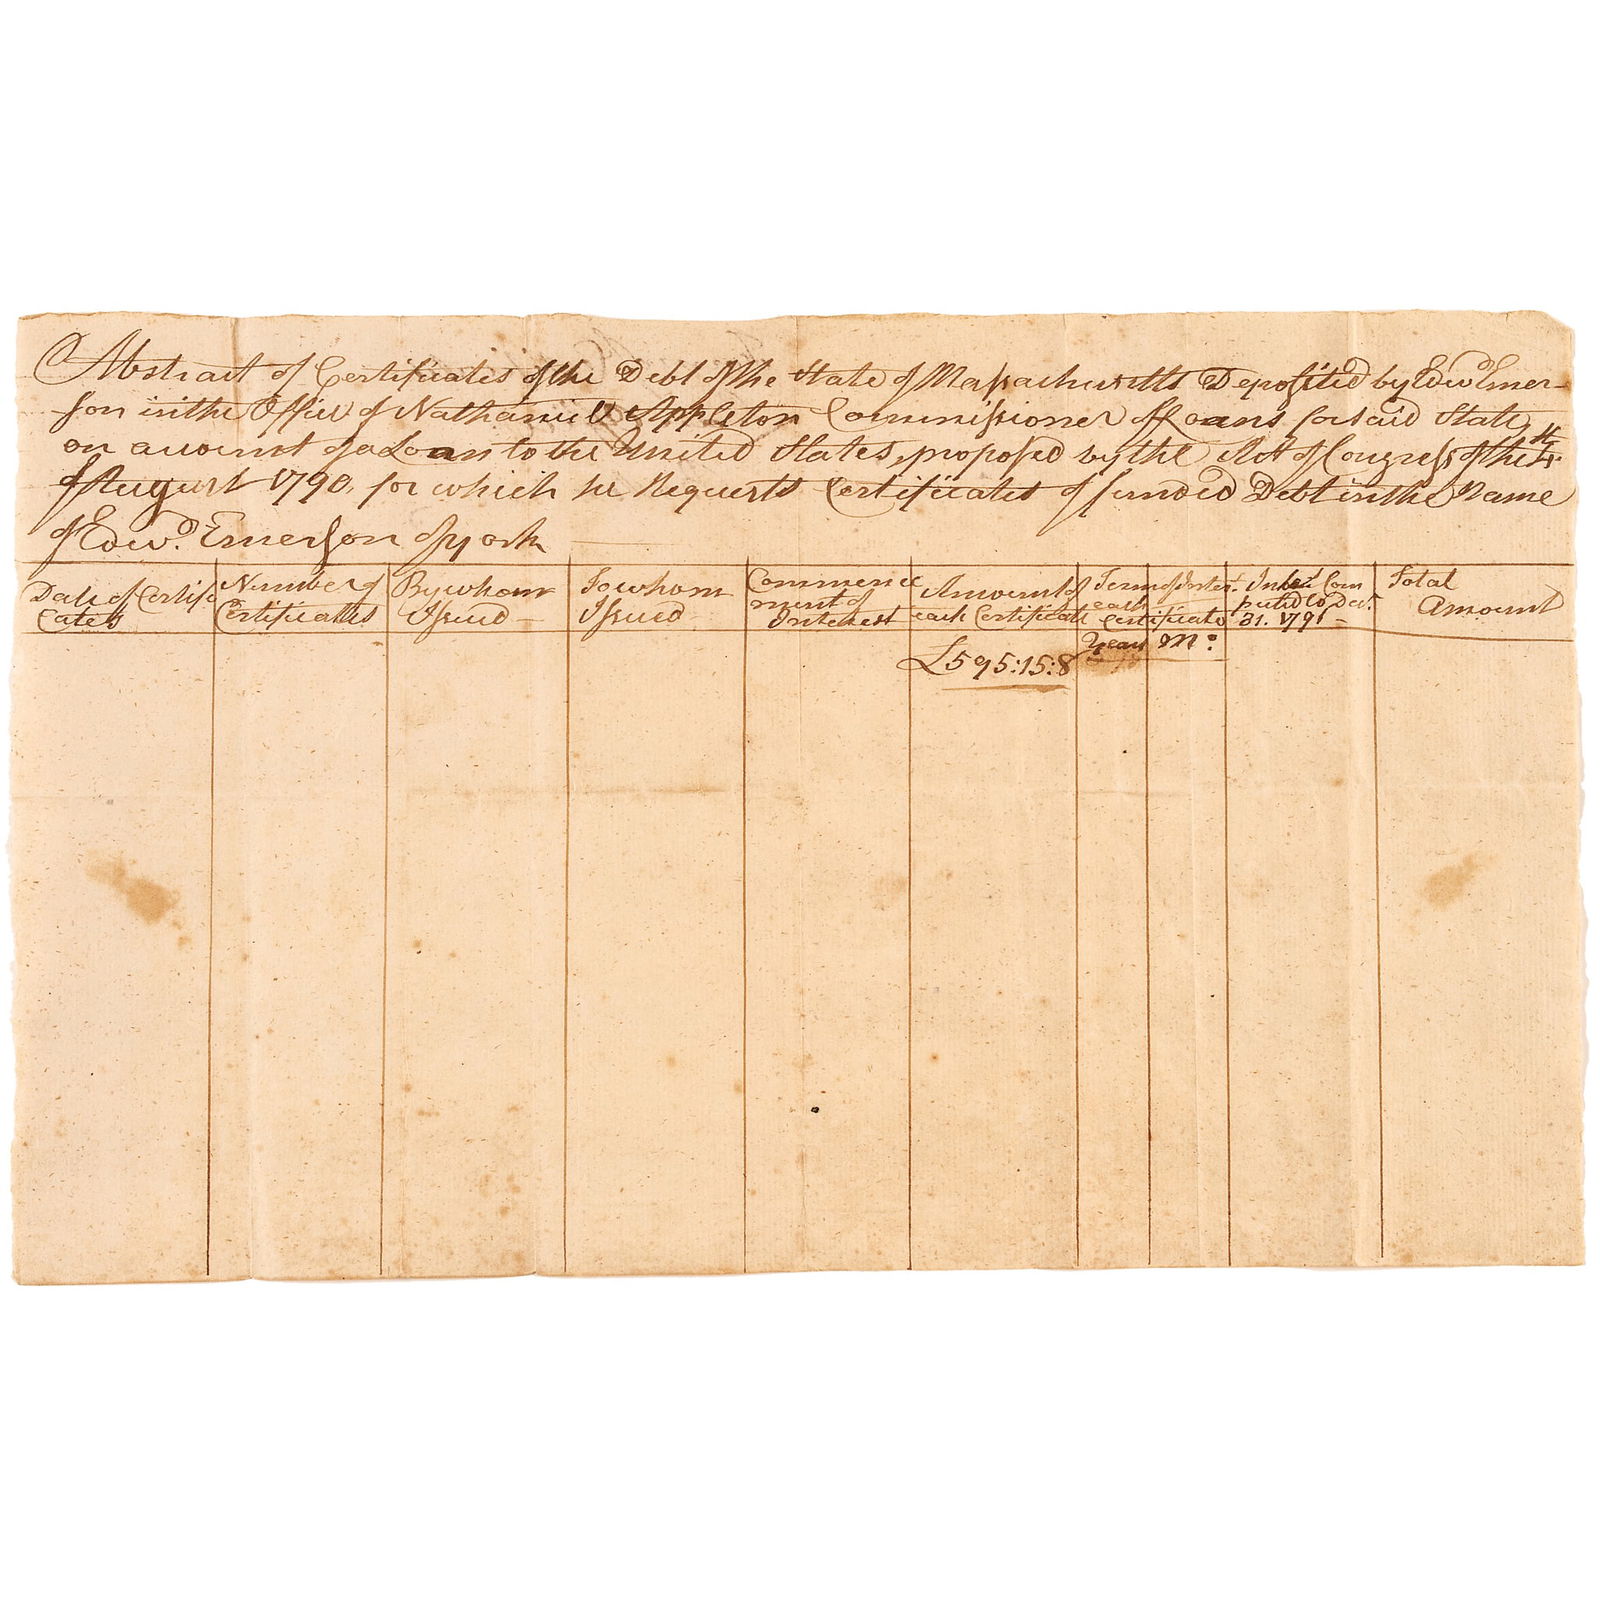 Abstract of Certificates of the Debt of the State of Massachusetts Deposited by Edwd Emer-
son in the Office of Nathaniel Appleton Commissioner of Loans for said State
on account of a Loan to the United States, proposed by the Act of Congress of the 4th
of August 1790, for which he Requests Certificates of funded Debt in the Name
of Edwd. Emerson of york
Date of Certifi
cates
Number of
Certificates
By whom
Issued
To whom
Issued
Commence
ment of
Interest
Amount of
each Certificate
Term of Interst.
each
Certificate
Years Mo.
Intest Com
puted to Decr.
31. 1791
Total
Amount
£595:15:8